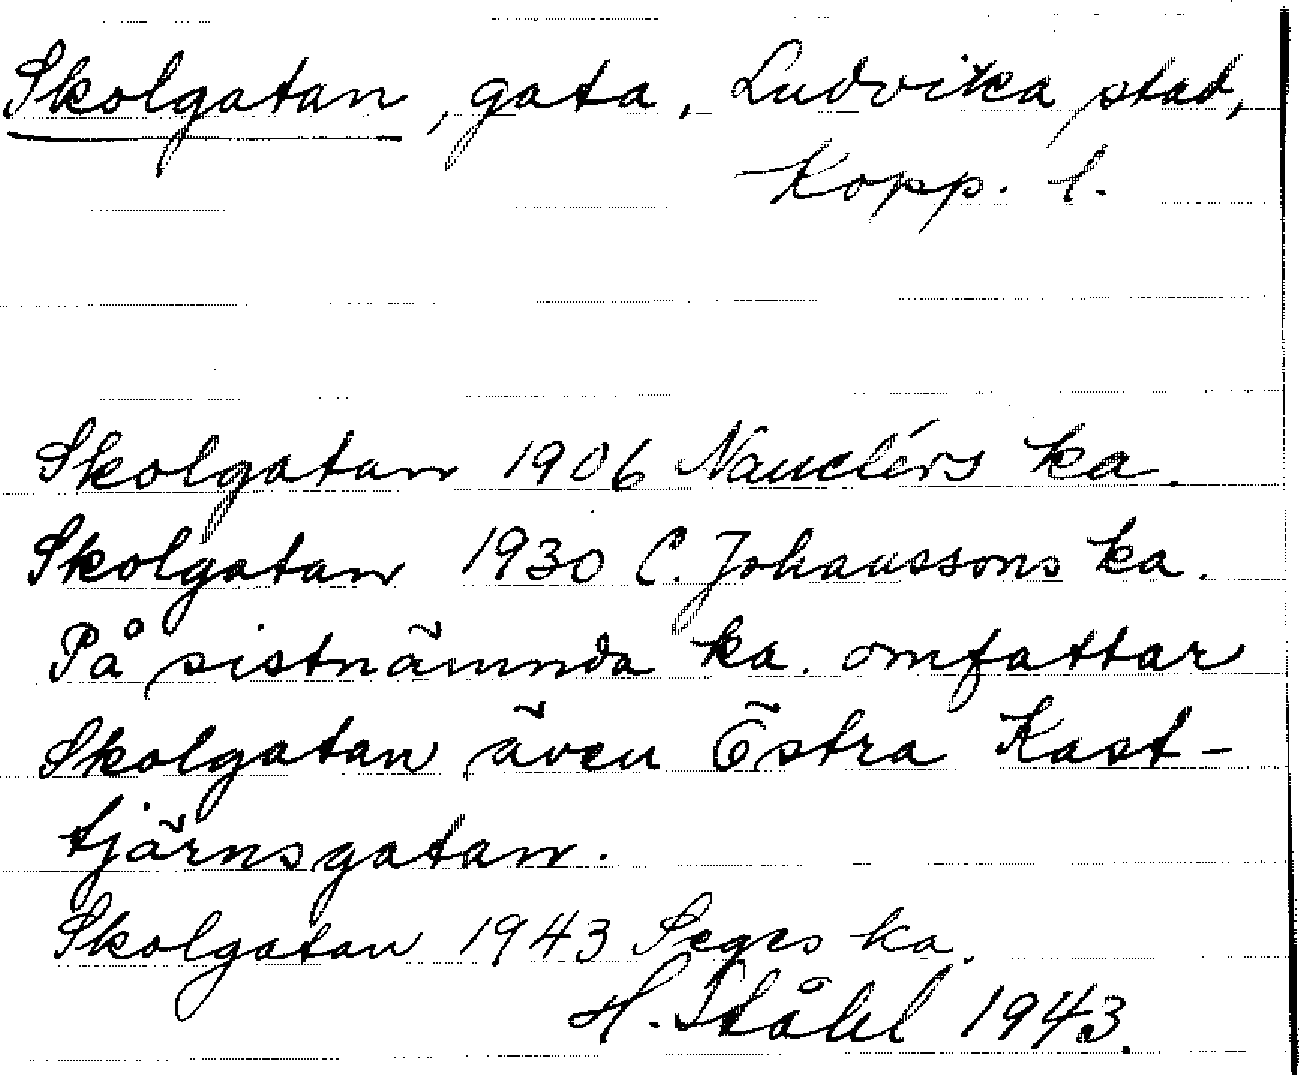 Skolgatan, gata, Ludvika stad,
Kopp. l.
Skolgatan 1906 Nauclérs ka.
Skolgatan 1930 C. Johanssons ka.
På sistnämnda ka. omfattar
Skolgatan även Östra Kast-
tjärnsgatan.
Skolgatan 1943 Seges ka.
H. Ståhl 1943.